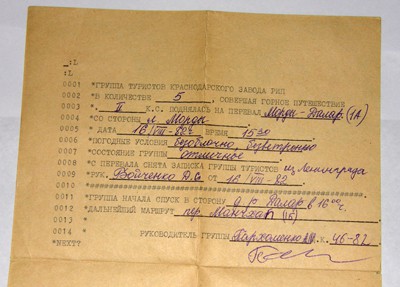 _:L
:L
0001 *ГРУППА ТУРИСТОВ КРАСНОДАРСКОГО ЗАВОДА РИП
0002 *В КОЛИЧЕСТВЕ 5, СОВЕРШАЯ ГОРНОЕ ПУТЕШЕСТВИЕ
0003 *. II К.С. ПОДНЯЛАСЬ НА ПЕРЕВАЛ Морды-Джалар (1А)
0004 *СО СТОРОНЫ л. Морды
0005 * ДАТА 16/VIII-82г ВРЕМЯ 15 30
0006 *ПОГОДНЫЕ УСЛОВИЯ безоблачно, безветренно
0007 *СОСТОЯНИЕ ГРУППЫ отличное
0008 *С ПЕРЕВАЛА СНЯТА ЗАПИСКА ГРУППЫ ТУРИСТОВ из Ленинграда
0009 *РУК. Войченко А.С. ОТ 16 VIII-82
0010 *
0011 *ГРУППА НАЧАЛА СПУСК В СТОРОНУ д.р. Джалар в 16 00
0012 *ДАЛЬНЕЙШИЙ МАРШРУТ пер.
0013 *
0014 * РУКОВОДИТЕЛЬ ГРУППЫ Пархоменко м.к. 46-82
*NEXT?